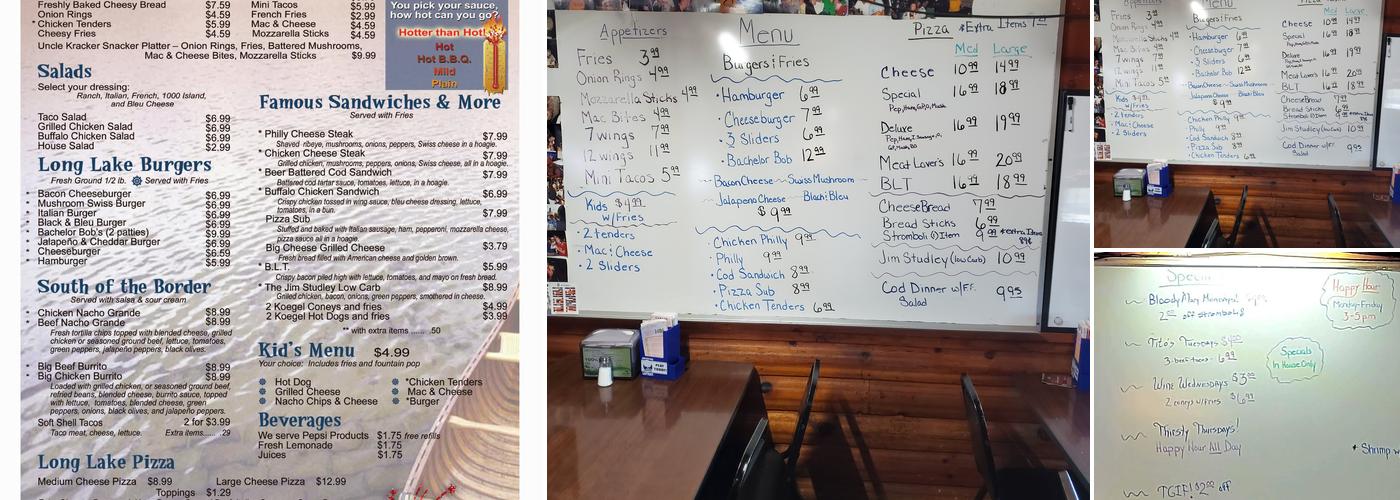 Freshly Baked Cheesy Bread $7.59 Mini Tacos $5.99
Onion Rings $4.59 French Fries $2.99
* Chicken Tenders $5.99 Mac & Cheese $4.59
Cheesy Fries $4.59 Mozzarella Sticks $4.59
Uncle Kracker Snacker Platter – Onion Rings, Fries, Battered Mushrooms,
Mac & Cheese Bites, Mozzarella Sticks $9.99
You pick your sauce,
how hot can you go?
Hotter than Hot!
Hot
Hot B.B.Q.
Mild
Plain
Salads
Select your dressing:
Ranch, Italian, French, 1000 Island,
and Bleu Cheese
Taco Salad $6.99
Grilled Chicken Salad $6.99
Buffalo Chicken Salad $6.99
House Salad $2.99
Long Lake Burgers
Fresh Ground 1/2 lb. Served with Fries
* Bacon Cheeseburger $6.99
* Mushroom Swiss Burger $6.99
* Italian Burger $6.99
* Black & Bleu Burger $6.99
* Bachelor Bob's (2 patties) $9.99
* Jalapeño & Cheddar Burger $6.99
* Cheeseburger $6.59
* Hamburger $5.99
South of the Border
Served with salsa & sour cream
* Chicken Nacho Grande $8.99
* Beef Nacho Grande $8.99
Fresh tortilla chips topped with blended cheese, grilled
chicken or seasoned ground beef, lettuce, tomatoes,
green peppers, jalapeño peppers, black olives.
* Big Beef Burrito $8.99
* Big Chicken Burrito $8.99
Loaded with grilled chicken, or seasoned ground beef,
refried beans, blended cheese, burrito sauce, topped
with lettuce, tomatoes, blended cheese, green
peppers, onions, black olives, and jalapeño peppers.
Soft Shell Tacos 2 for $3.99
Taco meat, cheese, lettuce. Extra items...... .29
Long Lake Pizza
Medium Cheese Pizza $8.99 Large Cheese Pizza $12.99
Toppings $1.29
Famous Sandwiches & More
Served with Fries
* Philly Cheese Steak $7.99
Shaved ribeye, mushrooms, onions, peppers, Swiss cheese in a hoagie.
* Chicken Cheese Steak $7.99
Grilled chicken, mushrooms, peppers, onions, Swiss cheese, all in a hoagie.
* Beer Battered Cod Sandwich $7.99
Battered cod tartar sauce, tomatoes, lettuce, in a hoagie.
* Buffalo Chicken Sandwich $6.99
Crispy chicken tossed in wing sauce, bleu cheese dressing, lettuce,
tomatoes, in a bun.
Pizza Sub $7.99
Stuffed and baked with Italian sausage, ham, pepperoni, mozzarella cheese,
pizza sauce all in a hoagie.
Big Cheese Grilled Cheese $3.79
Fresh bread filled with American cheese and golden brown.
* B.L.T. $5.99
Crispy bacon piled high with lettuce, tomatoes, and mayo on fresh bread.
* The Jim Studley Low Carb $8.99
Grilled chicken, bacon, onions, green peppers, smothered in cheese.
2 Koegel Coneys and fries $4.99
2 Koegel Hot Dogs and fries $3.99
** with extra items ...... .50
Kid's Menu $4.99
Your choice: Includes fries and fountain pop
Hot Dog *Chicken Tenders
Grilled Cheese Mac & Cheese
Nacho Chips & Cheese *Burger
Beverages
We serve Pepsi Products $1.75 free refills
Fresh Lemonade $1.75
Juices $1.75
Appetizers
Fries 3.99
Onion Rings 4.99
Mozzarella Sticks 4.99
Mac Bites 4.99
7 wings 7.99
12 wings 11.99
Mini Tacos 5.99
Kids $4.99
w/Fries
• 2 tenders
• Mac & Cheese
• 2 Sliders
Menu
Burgers & Fries
• Hamburger 6.99
• Cheeseburger 7.99
• 3 Sliders 6.99
• Bachelor Bob 12.99
~Bacon Cheese ~Swiss Mushroom
Jalapeno Cheese Black & Bleu
$9.99
Chicken Philly 9.99
• Philly 9.99
• Cod Sandwich 8.99
• Pizza Sub 8.99
• Chicken Tenders 6.99
Pizza *Extra Items
Med Large
Cheese 10.99 14.99
Special 16.99 18.99
Deluxe 16.99 19.99
Meat Lover's 16.99 20.99
BLT 16.49 18.99
Cheese Bread 7.99
Bread Sticks 6.99
Stromboli (1) Item 9.99 *extra Items
89¢
Jim Studley (low carb) 10.99
Cod Dinner w/F.F. 9.95
Salad
Med Large
Fries 3.99
Onion Rings 4.99
Mac Bites 4.99
7 wings 7.99
12 wings 11.99
Mini Tacos 5.99
Kids $4.99
w/Fries
• 2 tenders
• Mac & Cheese
• 2 Sliders
Burgers & Fries
• Hamburger 6.99
• Cheeseburger 7.99
• 3 Sliders 6.99
• Bachelor Bob 12.99
~Bacon Cheese ~Swiss Mushroom
Jalapeno Cheese Black & Bleu
$9.99
Chicken Philly 9.99
Philly 9.99
• Cod Sandwich 8.99
• Pizza Sub 8.99
• Chicken Tenders 6.99
Cheese 10.99 14.99
Special 16.99 18.99
Deluxe 16.99 19.99
Meat Lovers 16.99 20.99
BLT 16.49 18.99
Cheese Bread 7.99
Bread Sticks 6.99
Jim Studley (low carb) 10.99
Cod Dinner w/FF 9.95
Salad
Bloody Mary Mondays!
2.00 off strombolis
Tito's Tuesdays $4.00
3 beef tacos 6.99
Wine Wednesdays $3.00
2 coneys w/fries $6.99
Thirsty Thursdays!
Happy Hour All Day
TGIF! $2.00 off
Happy Hour
Monday-Friday
3-5pm
Specials
In House Only
* Shrimp